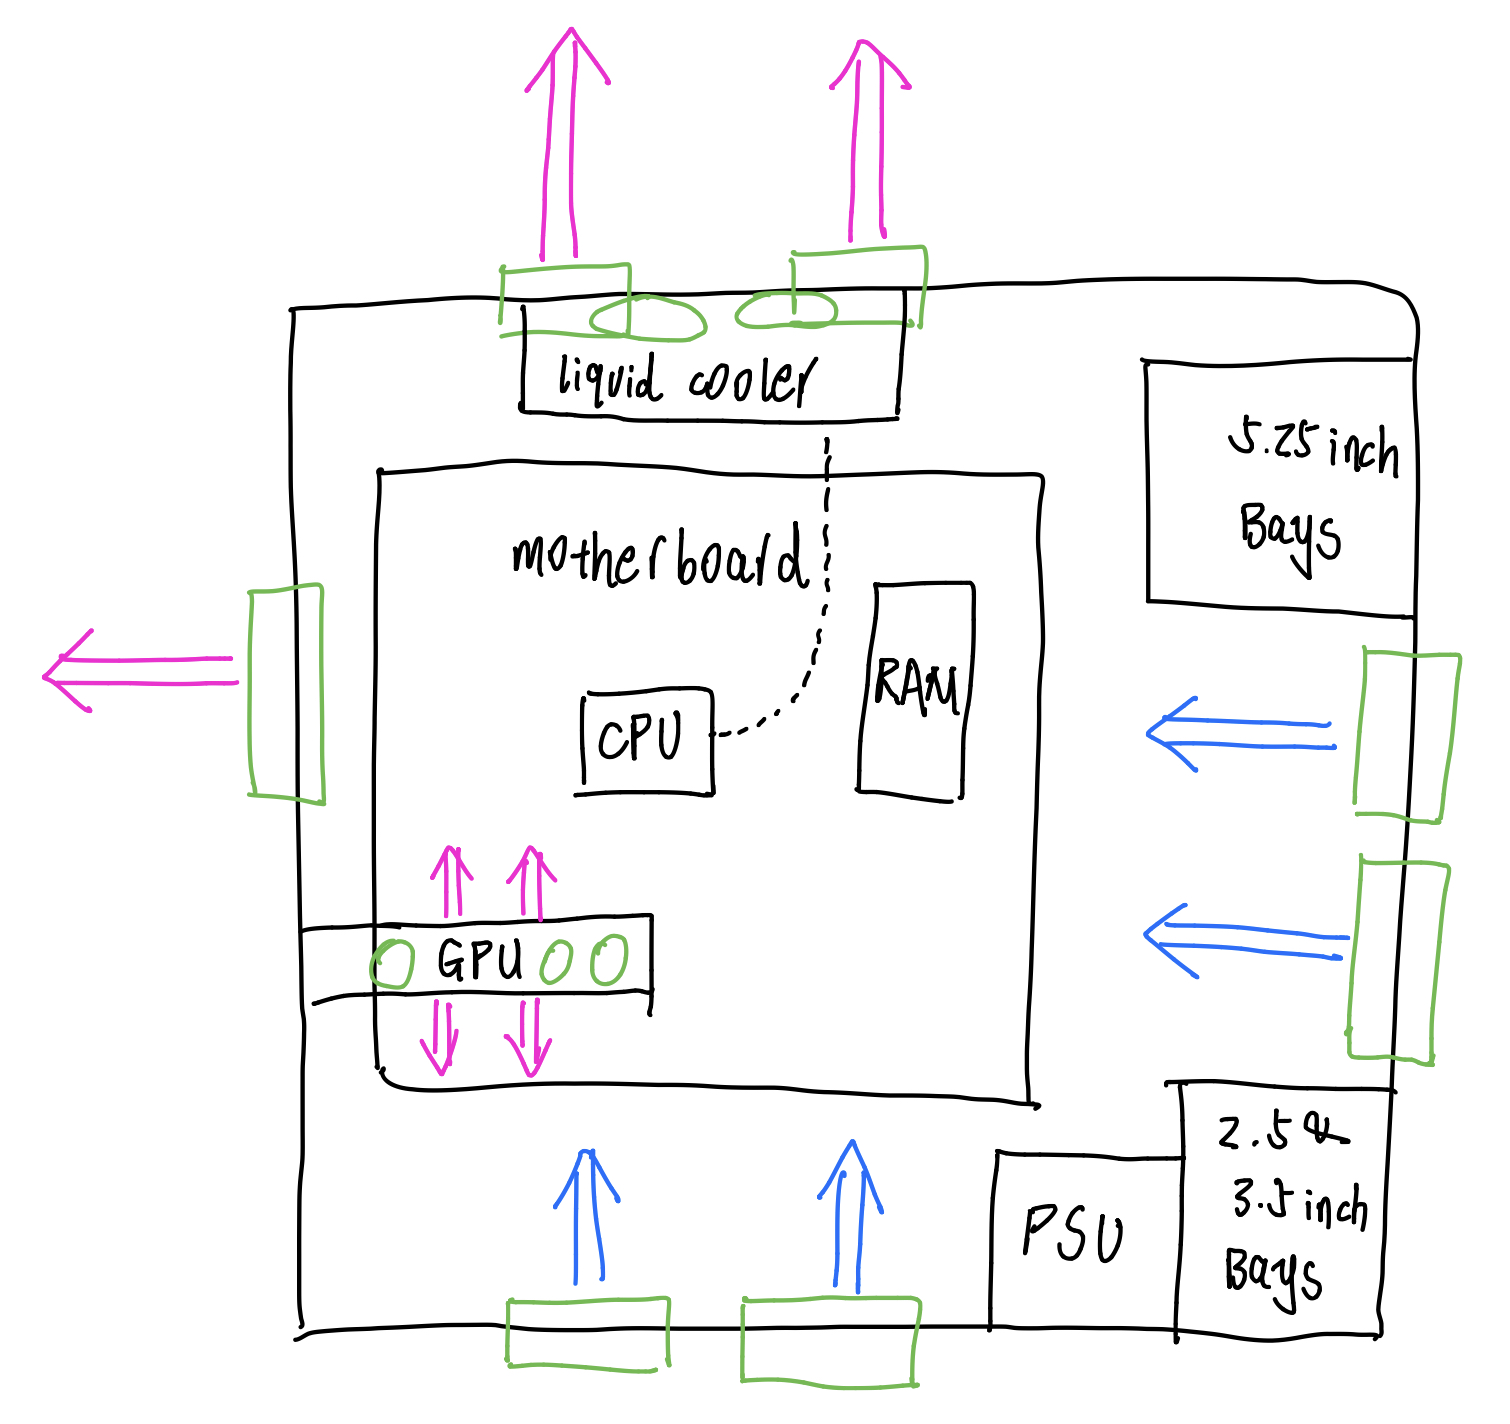 liquid cooler
5.25 inch
Bays
motherboard
RAM
CPU
GPU
2.5
3.5 inch
Bays
PSU